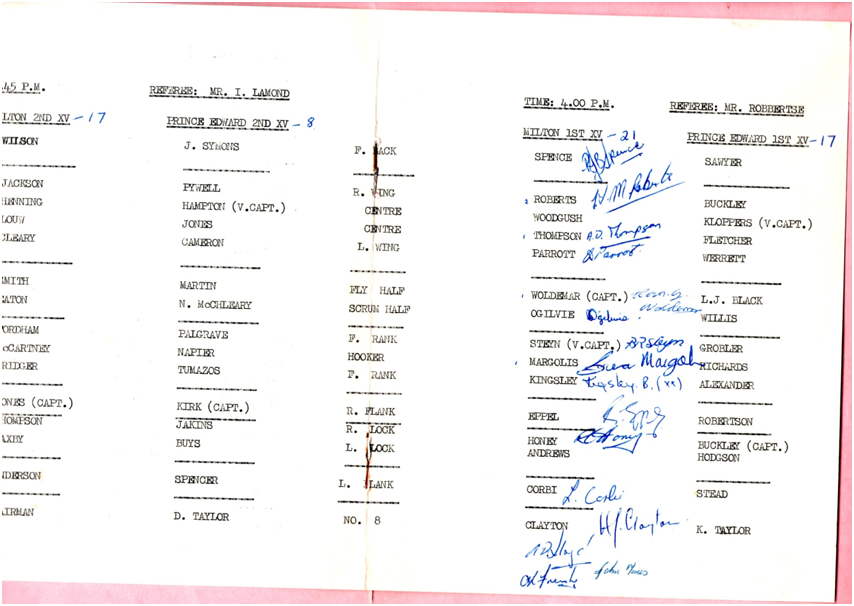 .45 P.M.
REFEREE: MR. I. LAMOND
LTON 2ND XV - 17
PRINCE EDWARD 2ND XV - 8
WILSON
J. SYMONS
F. BACK
JACKSON
PYWELL
R. WING
HENNING
HAMPTON (V.CAPT.)
CENTRE
LOUW
JONES
CENTRE
CLEARY
CAMERON
L. WING
SMITH
MARTIN
FLY HALF
EATON
N. McCHLEARY
SCRUM HALF
FORDHAM
PALGRAVE
F. RANK
McCARTNEY
NAPIER
HOOKER
RIDGER
TUMAZOS
F. RANK
ONES (CAPT.)
KIRK (CAPT.)
R. FLANK
HOMPSON
JAKINS
R. LOCK
AXBY
BUYS
L. LOCK
NDERSON
SPENCER
L. FLANK
AIRMAN
D. TAYLOR
NO. 8
TIME: 4.00 P.M.
REFEREE: MR. ROBBERTSE
MILTON 1ST XV - 21
PRINCE EDWARD 1ST XV - 17
SPENCE Spence
SAWYER
ROBERTS H.M Roberts
BUCKLEY
WOODGUSH
KLOPPERS (V.CAPT.)
THOMPSON A.D. Thompson
FLETCHER
PARROTT Parrott
WERRETT
WOLDEMAR (CAPT.) Woldemar
L.J. BLACK
OGILVIE Ogilvie
WILLIS
STEYN (V.CAPT.) Steyn
GROBLER
MARGOLIS Margolis
RICHARDS
KINGSLEY Kingsley. B. (xx)
ALEXANDER
EPPEL Eppel
ROBERTSON
HONEY Honey
BUCKLEY (CAPT.)
ANDREWS
HODGSON
CORBI L. Corbi
STEAD
CLAYTON Clayton
K. TAYLOR
John